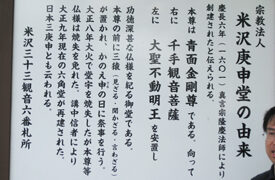 宗教法人
米沢庚申堂の由来
慶長六年(一六〇一)真言宗隆慶法師により
創建されたと伝えられる。
本尊は 青面金剛尊 である。向って
右に 千手観音菩薩
左に 大聖不動明王 を安置し
功徳深甚な仏様を祀る御堂である。
本尊の前に三猿(見ざる・聞かざる・言わざる)
が置かれ、かのえ申の日に祭事を行う。
大正八年大火で堂宇を焼失したが本尊等
仏様は焼失を免れた。講中信者により
大正九年現在の六角堂が再建された。
日本三庚申とも云われる。
米沢三十三観音六番札所